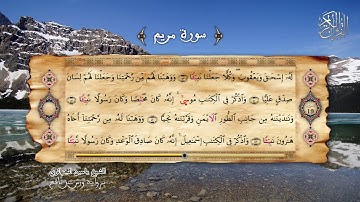 سورة مريم
لَهُۥٓ إِسْحَٰقَ وَيَعْقُوبَ ۖ وَكُلًّا جَعَلْنَا نَبِيًّا ۝ وَوَهَبْنَا لَهُم مِّن رَّحْمَتِنَا وَجَعَلْنَا لَهُمْ لِسَانَ
صِدْقٍ عَلِيًّا ۝ وَٱذْكُرْ فِى ٱلْكِتَٰبِ مُوسَىٰٓ ۚ إِنَّهُۥ كَانَ مُخْلَصًا وَكَانَ رَسُولًا نَّبِيًّا ۝
وَنَٰدَيْنَٰهُ مِن جَانِبِ ٱلطُّورِ ٱلْأَيْمَنِ وَقَرَّبْنَٰهُ نَجِيًّا ۝ وَوَهَبْنَا لَهُۥ مِن رَّحْمَتِنَآ أَخَاهُ
هَٰرُونَ نَبِيًّا ۝ وَٱذْكُرْ فِى ٱلْكِتَٰبِ إِسْمَٰعِيلَ ۚ إِنَّهُۥ كَانَ صَادِقَ ٱلْوَعْدِ وَكَانَ رَسُولًا نَّبِيًّا